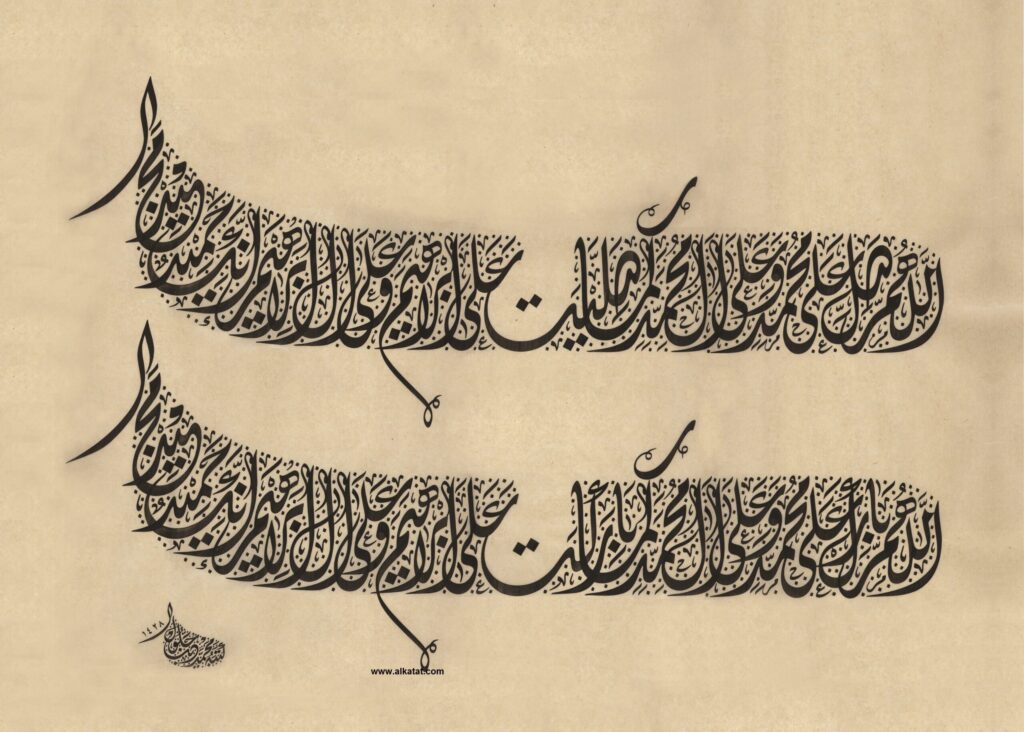 اللهم صل على محمد وعلى آل محمد كما صليت على إبراهيم وعلى آل إبراهيم إنك حميد مجيد
اللهم بارك على محمد وعلى آل محمد كما باركت على إبراهيم وعلى آل إبراهيم إنك حميد مجيد
١٤٢٨
www.alkatat.com